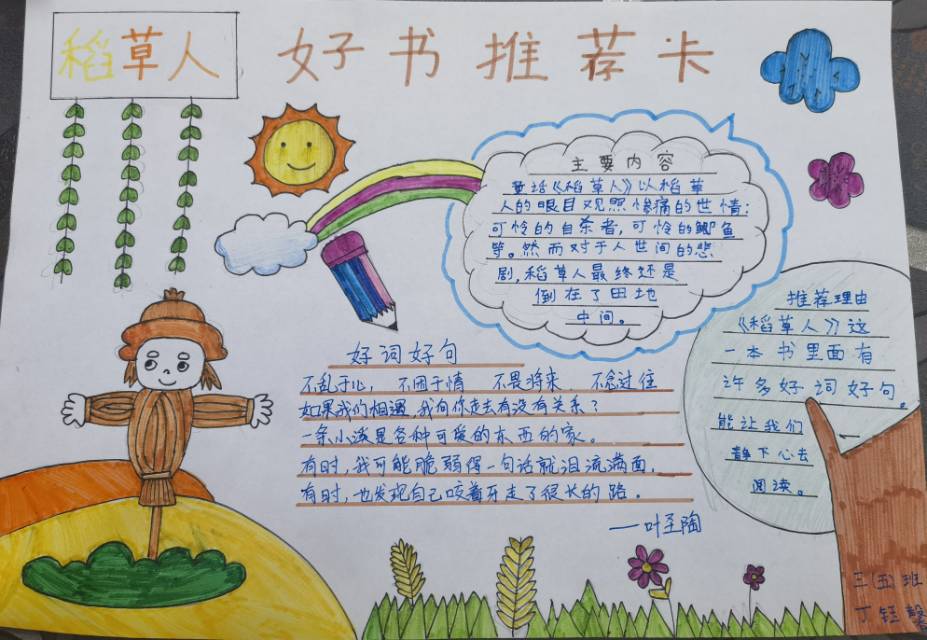 稻草人
好书推荐卡
主要内容
童话《稻草人》以稻草
人的眼目观照惨痛的世情：
可怜的自杀者，可怜的鲫鱼
等。然而对于人世间的悲
剧，稻草人最终还是
倒在了田地
中间。
推荐理由
《稻草人》这
一本书里面有
许多好词好句。
能让我们
静下心去
阅读。
好词好句
不乱于心，不困于情 不畏将来 不念过往
如果我们相遇，我向你走去有没有关系？
一条小溪是各种可爱的东西的家。
有时，我可能脆弱得一句话就泪流满面，
有时，也发现自己咬着牙走了很长的路。
——叶圣陶
三（五）班
丁钰馨